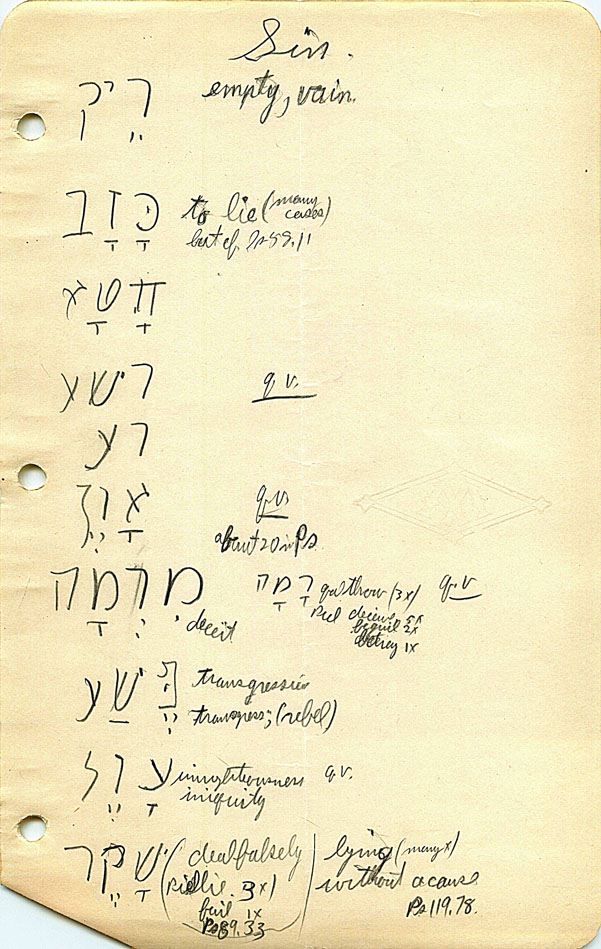 Sin.
רֵיק empty, vain.
כָּזָב to lie (many cases)
Ps 58.11
חָטָא
רשע q.v.
רע
אָוֶן q.v.
about 20 in Ps.
מִרְמָה deceit רָמָה qal throw (3x) q.v
Piel deceive 5x
beguil 2x
betray 1x
פֶּשַׁע transgression
transgress; (rebel)
עָוֶל unrighteousness q.v.
iniquity
שָׁקֶר (deal falsely) lying (many x)
Piel lie. 3x) without a cause
fail 1x Ps 119.78.
Ps 89.33